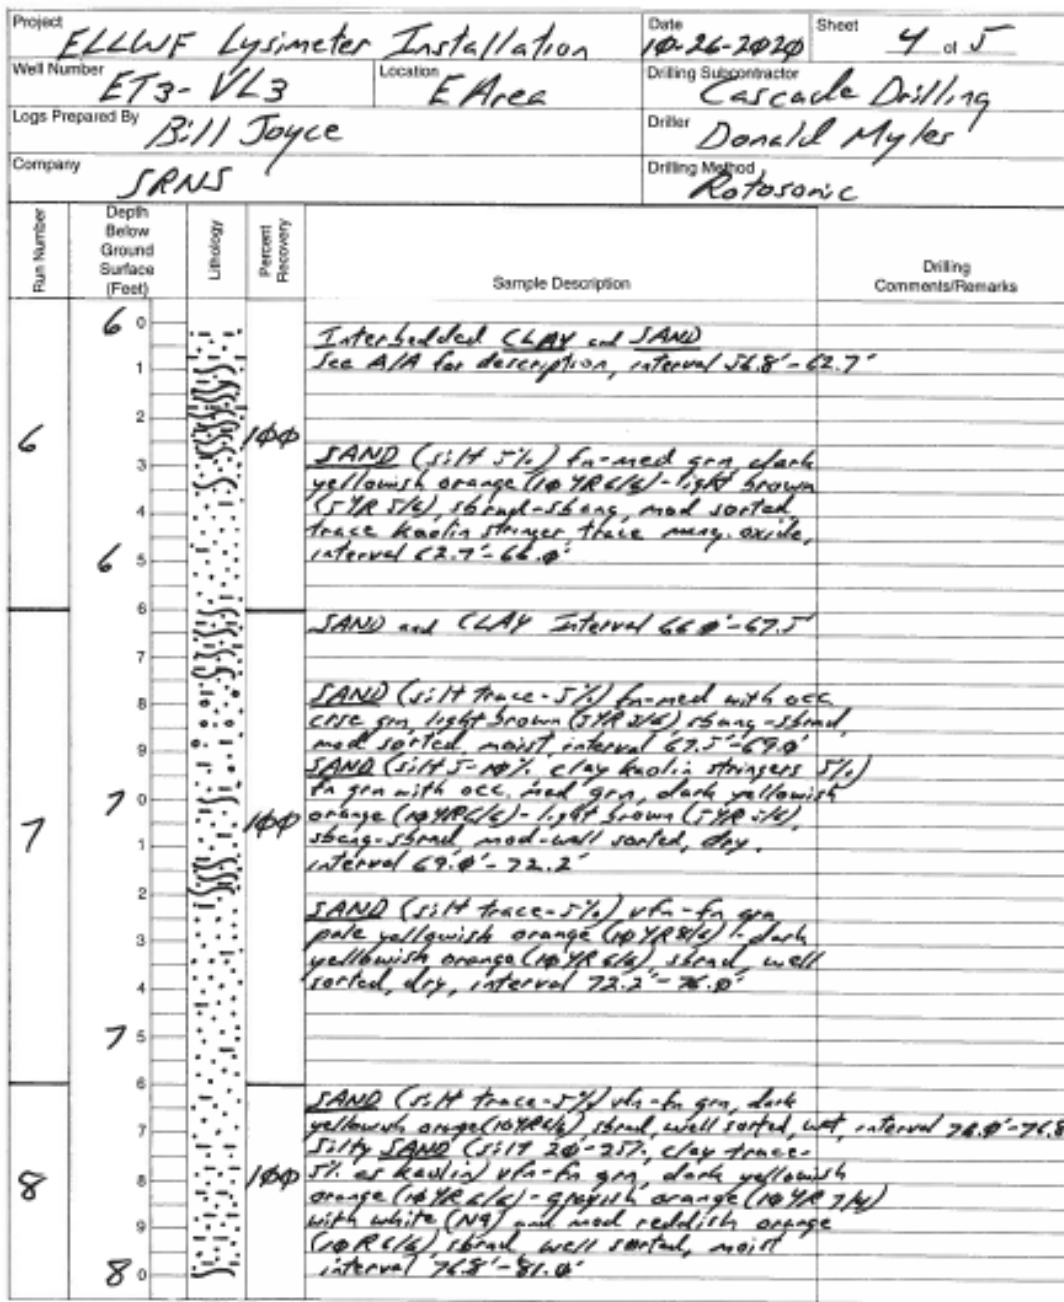 Project ELLWF Lysimeter Installation Date 10-26-2020 Sheet 4 of 5
Well Number ET3-VL3 Location E Area Drilling Subcontractor Cascade Drilling
Logs Prepared By Bill Joyce Driller Donald Myles
Company SRNS Drilling Method Rotosonic
Run Number Depth Below Ground Surface (Feet) Lithology Percent Recovery Sample Description Drilling Comments/Remarks
6 0
Interbedded CLAY and SAND
1 See A/A for description, interval 56.8'-62.7'
2
6 100
3 SAND (silt 5%) fn-med grn, dark
yellowish orange (10YR6/6)-light brown
4 (5YR 5/6), sbrnd-sbang, mod sorted,
trace kaolin stringer, trace mang. oxide,
6 5 interval 62.7'-66.0'
6
SAND and CLAY Interval 66.0'-67.5'
7
8 SAND (silt trace-5%) fn-med with occ
crse grn, light brown (5YR 5/6) sbang-sbrnd,
9 mod sorted, moist, interval 67.5'-69.0'
SAND (silt 5-10%, clay kaolin stringers 5%)
7 0 fn grn with occ. med grn, dark yellowish
7 100 orange (10YR6/6)-light brown (5YR 5/6),
1 sbang-sbrnd, mod-well sorted, dry,
interval 69.0'-72.2'
2
SAND (silt trace-5%) vfn-fn grn
3 pale yellowish orange (10YR8/6)-dark
yellowish orange (10YR 6/6) sbrnd, well
4 sorted, dry, interval 72.2'-76.0'
7 5
6
SAND (silt trace-5%) vfn-fn grn, dark
7 yellowish orange (10YR6/6) sbrnd, well sorted, wet, interval 76.0'-76.8'
Silty SAND (silt 20-25%, clay trace-
8 8 100 5% as kaolin) vfn-fn grn, dark yellowish
orange (10YR 6/6)-grayish orange (10YR 7/4)
9 with white (N9) and mod reddish orange
(10R6/6), sbrnd, well sorted, moist
8 0 interval 76.8'-81.0'